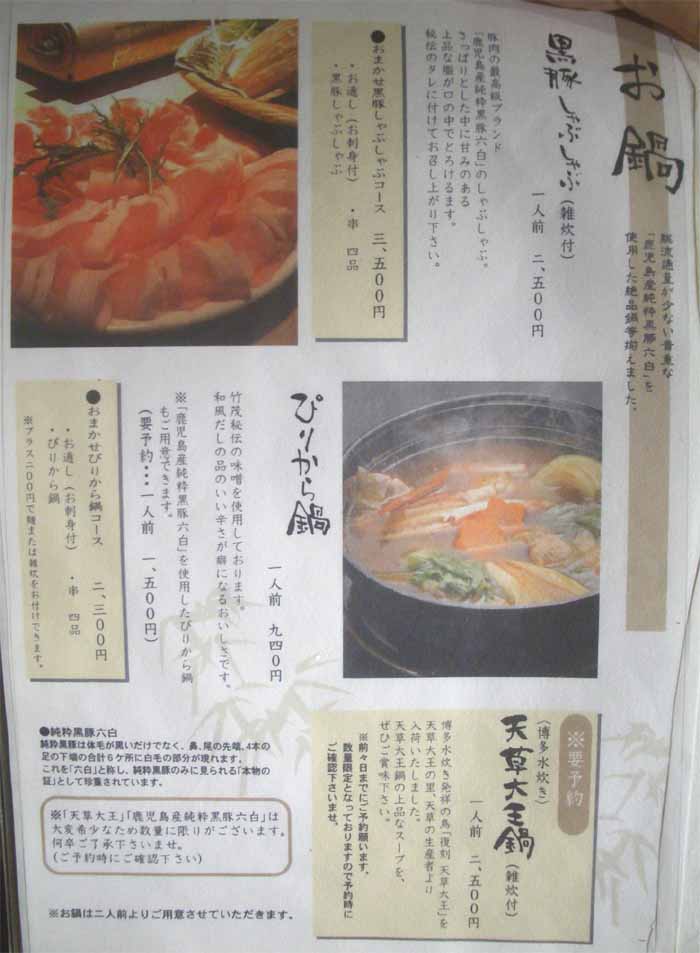 お鍋
難波流通量が少ない貴重な
「鹿児島産純粋黒豚六白」を
使用した絶品鍋等揃えました。
黒豚しゃぶしゃぶ(雑炊付)
一人前 二、五〇〇円
豚肉の最高級ブランド
「鹿児島産純粋黒豚六白」のしゃぶしゃぶ。
さっぱりとした中に甘みのある
上品な脂が口の中でとろけるます。
秘伝のタレに付けてお召し上がり下さい。
●おまかせ黒豚しゃぶしゃぶコース 三、五〇〇円
・お通し(お刺身付) ・串 四品
・黒豚しゃぶしゃぶ
ぴりから鍋
一人前 九四〇円
竹茂秘伝の味噌を使用しております。
和風だしの品のいい辛さが癖になるおいしさです。
※「鹿児島産純粋黒豚六白」を使用したぴりから鍋
もご用意できます。
(要予約・・・一人前 一、五〇〇円)
●おまかせぴりから鍋コース 二、三〇〇円
・お通し(お刺身付) ・串 四品
・ぴりから鍋
※プラス二〇〇円で麺または雑炊をお付けできます。
※要予約
(博多水炊き)
天草大王鍋(雑炊付)
一人前 二、五〇〇円
博多水炊き発祥の鳥「復刻 天草大王」を
天草大王の里、天草の生産者より
入荷いたしました。
天草大王鍋の上品なスープを、
ぜひご賞味下さい。
※前々日までにご予約願います。
数量限定となっておりますので予約時に
ご確認下さいませ。
●純粋黒豚六白
純粋黒豚は体毛が黒いだけでなく、鼻、尾の先端、4本の
足の下端の合計6ケ所に白毛の部分が現れます。
これを「六白」と称し、純粋黒豚のみに見られる「本物の
証」として珍重されています。
※「天草大王」「鹿児島産純粋黒豚六白」は
大変希少なため数量に限りがございます。
何卒ご了承下さいませ。
(ご予約時にご確認下さい)
※お鍋は二人前よりご用意させていただきます。